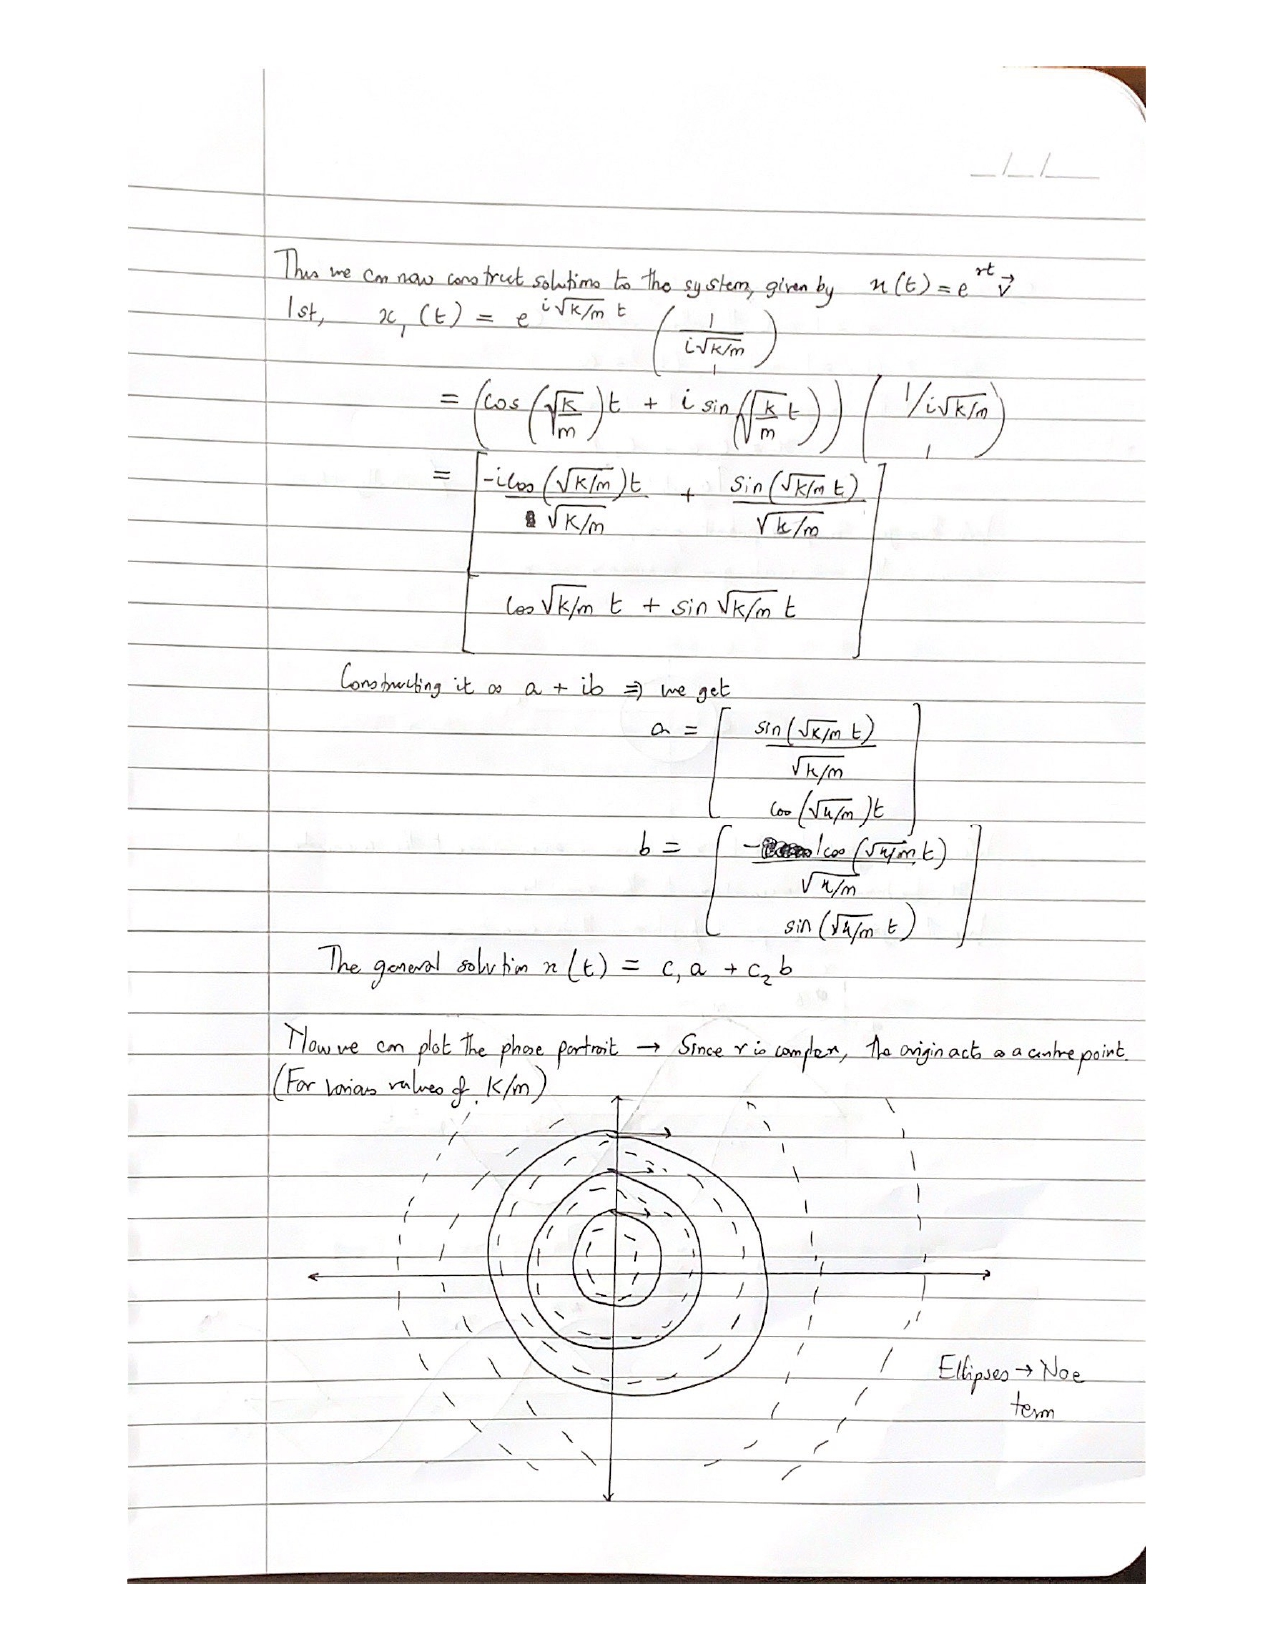 _/_/__
Thus we can now construct solutions to the system, given by x(t) = e^{rt} v⃗
1st, x₁(t) = e^{i√(k/m) t} ( 1/(i√(k/m)) ; 1 )
= ( cos(√(k/m))t + i sin(√(k/m) t) ) ( 1/i√(k/m) ; 1 )
= [ -i cos(√(k/m))t / √(k/m) + sin(√(k/m) t) / √(k/m)
cos √(k/m) t + sin √(k/m) t ]
Constructing it as a + ib ⇒ we get
a = [ sin(√(k/m) t) / √(k/m)
cos(√(k/m))t ]
b = [ -1cos(√(k/m) t) / √(k/m)
sin(√(k/m) t) ]
The general solution x(t) = c₁a + c₂b
Now we can plot the phase portrait → Since r is complex, the origin acts as a centre point.
(For various values of K/m)
Ellipses → No e
term